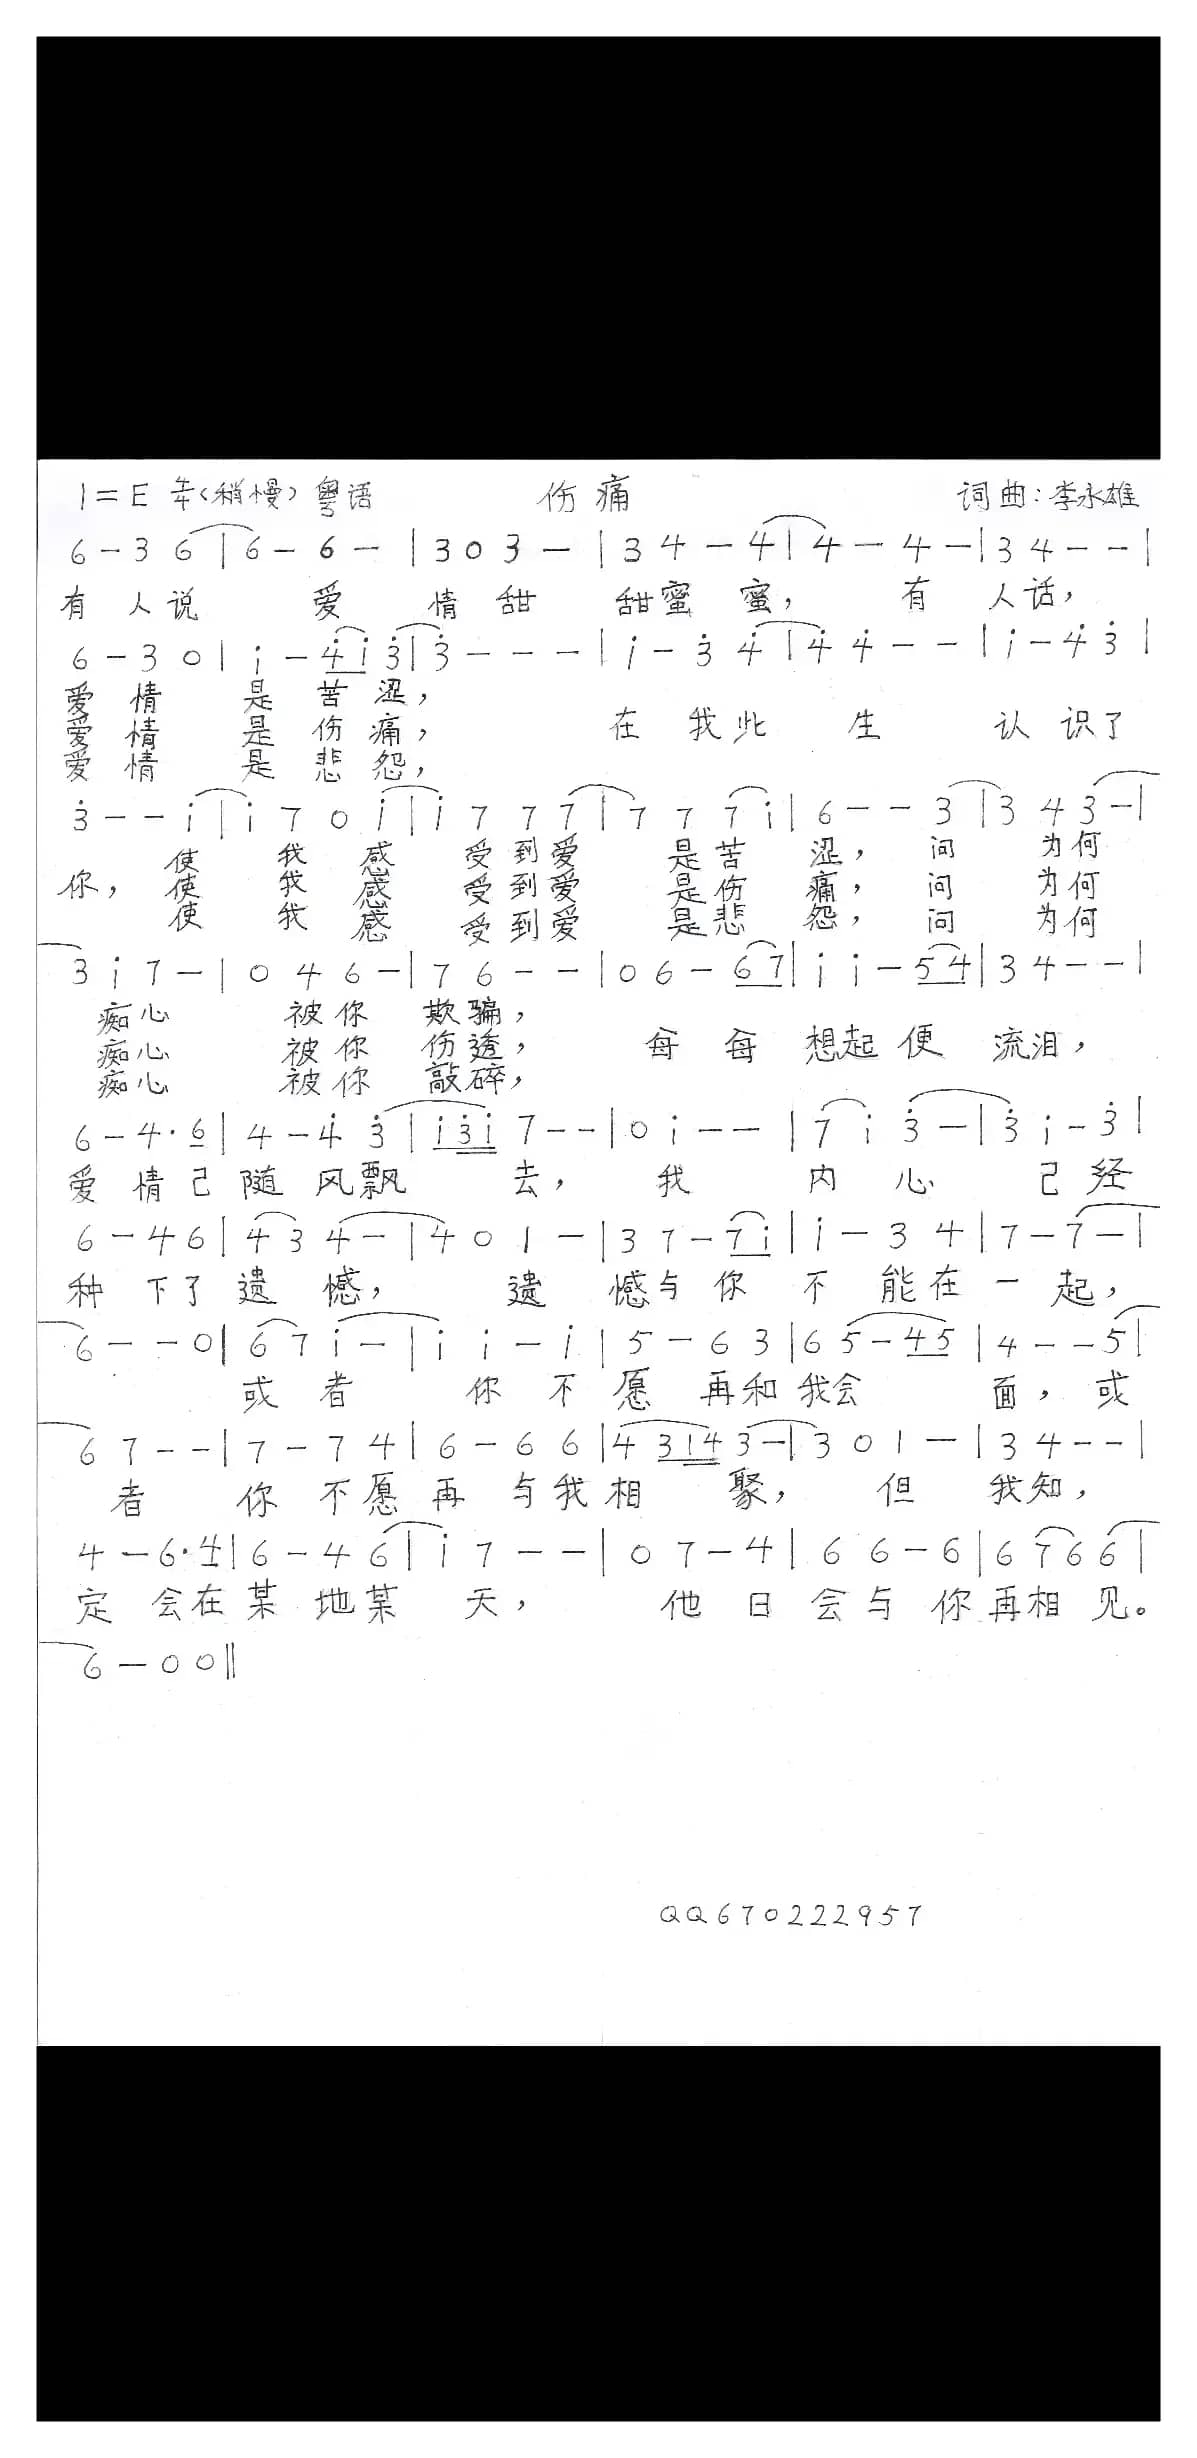 1=E 4/4(稍慢) 粤语 伤痛 词曲:李永雄
6 - 3 6 | 6 - 6 - | 3 0 3 - | 3 4 - 4 | 4 - 4 - | 3 4 - - |
有人说 爱 情甜 甜蜜蜜, 有 人话,
6 - 3 0 | i - 4̇ i 3̇ | 3̇ - - - | i - 3̇ 4̇ | 4̇ 4̇ - - | i - 4̇ 3̇ |
爱情 是苦涩,
爱情 是伤痛, 在我此 生 认识了
爱情 是悲怨,
3̇ - - i | i 7 0 i | i 7 7 7 | 7 7 7 i | 6 - - 3 | 3 4 3 - |
使 我 感 受到爱 是苦 涩, 问 为何
你, 使 我 感 受到爱 是伤 痛, 问 为何
使 我 感 受到爱 是悲 怨, 问 为何
3 i 7 - | 0 4 6 - | 7 6 - - | 0 6 - 6 7 | i i - 5 4 | 3 4 - - |
痴心 被你 欺骗,
痴心 被你 伤透, 每每 想起便 流泪,
痴心 被你 敲碎,
6 - 4 · 6 | 4 - 4̇ 3̇ | i 3̇ i 7 - - | 0 i - - | 7 i 3̇ - | 3̇ i - 3̇ |
爱情己随风飘 去, 我 内心 己经
6 - 4 6 | 4 3 4 - | 4 0 1 - | 3 7 - 7 i | i - 3 4 | 7 - 7 - |
种下了遗憾, 遗 憾与你 不能在一起,
6 - - 0 | 6 7 i - | i i - i | 5 - 6 3 | 6 5 - 4 5 | 4 - - 5 |
或者 你不愿 再和我会 面, 或
6 7 - - | 7 - 7 4 | 6 - 6 6 | 4 3 1 4 3 - | 3 0 1 - | 3 4 - - |
者 你不愿再与我相 聚, 但 我知,
4 - 6 · 4 | 6 - 4 6 | i 7 - - | 0 7 - 4 | 6 6 - 6 | 6 7 6 6 |
定会在某地某 天, 他日会与你再相见。
6 - 0 0 ||
QQ670222957